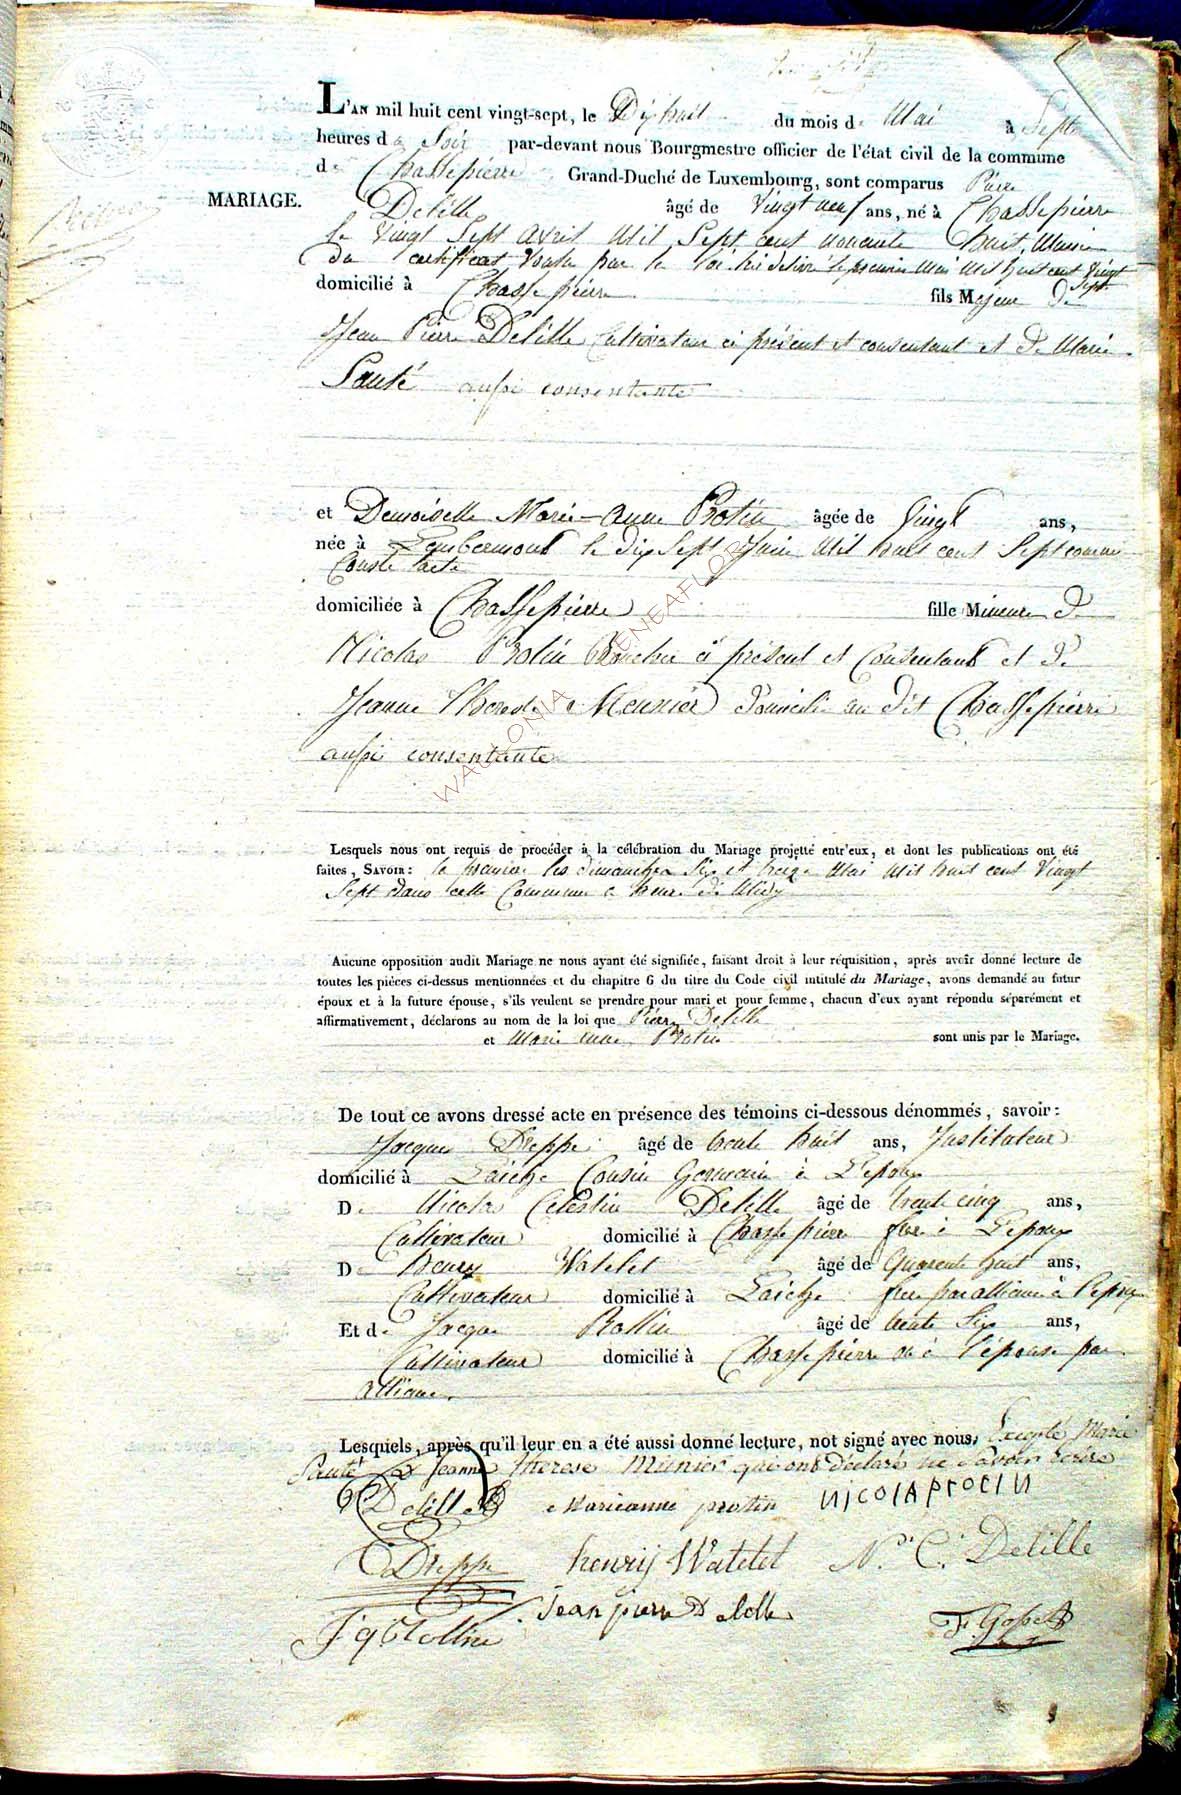 L'AN mil huit cent vingt-sept, le Dix huit du mois de Mai à Sept
heures du Soir par-devant nous Bourgmestre officier de l'état civil de la commune
de Chassepierre Grand-Duché de Luxembourg, sont comparus Pierre
MARIAGE.
Delille âgé de vingt neuf ans, né à Chassepierre
le vingt Sept avril Mil Sept cent nonante huit, Munie
du certificat voulu par la loi lui délivré le premier Mai Mil huit cent vingt
Sept
domicilié à Chassepierre fils Majeur de
Jean Pierre Delille Cultivateur ci présent et consentant et de Marie
Santé aussi consentante
et Demoiselle Marie-Anne Protin âgée de vingt ans,
née à Lambermont le dix Sept Juin Mil huit cent Sept comme
Conste l'acte
domiciliée à Chassepierre fille Mineure de
Nicolas Protin ci présent et Consentant et de
Jeanne Therese Meunier domicilié au dit Chassepierre
aussi consentante
WALLONIA GENEAFLORE
Lesquels nous ont requis de procéder à la célébration du Mariage projetté entr'eux, et dont les publications ont été
faites, SAVOIR: le premier les dimanches Six et treize Mai Mil huit cent Vingt
Sept dans cette Commune à heure de Midy
Aucune opposition audit Mariage ne nous ayant été signifiée, faisant droit à leur réquisition, après avoir donné lecture de
toutes les pièces ci-dessus mentionnées et du chapitre 6 du titre du Code civil intitulé du Mariage, avons demandé au futur
époux et à la future épouse, s'ils veulent se prendre pour mari et pour femme, chacun d'eux ayant répondu séparément et
affirmativement, déclarons au nom de la loi que Pierre Delille
et Marie Anne Protin sont unis par le Mariage.
De tout ce avons dressé acte en présence des témoins ci-dessous dénommés, savoir:
Jacques Dreppe âgé de trente huit ans, Instituteur
domicilié à Laiche Cousin Germain à L'epoux
De Nicolas Celestin Delille âgé de trente cinq ans,
Cultivateur domicilié à Chassepierre frere à L'epoux
De Henry Watelet âgé de Quarente huit ans,
Cultivateur domicilié à Laiche frere par alliance à l'epoux
Et de Jacque Rollin âgé de trente Six ans,
Cultivateur domicilié à Chassepierre à l'épouse par
alliance.
Lesquels, après qu'il leur en a été aussi donné lecture, ont signé avec nous. Excepté Marie
Santé et Jeanne therese Munier qui ont déclaré ne Savoir ecrire
P Delille marieanne protin NICOLA PROTIN
Dreppe henrij Watelet N. C. Delille
J q Rollin Jean pierre Delille F. Gosset